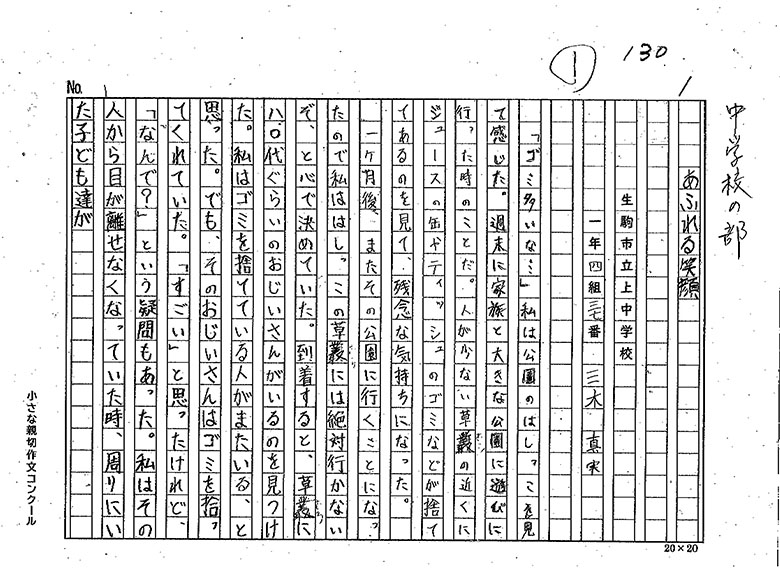 130
①
1
中学校の部
No. 1
あふれる笑顔
生駒市立上中学校
一年四組三七番 三木 真実
「ゴミ多いな…」私は公園のはしっこを見
て感じた。週末に家族と大きな公園に遊びに
行った時のことだ。人が少ない草叢の近くに
ジュースの缶やティッシュのゴミなどが捨て
てあるのを見て、残念な気持ちになった。
一ヶ月後、またその公園に行くことになっ
たので私ははしっこの草叢には絶対行かない
ぞ、と心で決めていた。到着すると、草叢に
八〇代ぐらいのおじいさんがいるのを見つけ
た。私はゴミを捨てている人がまたいる、と
思った。でも、そのおじいさんはゴミを拾っ
てくれていた。「すごい」と思ったけれど、
「なんで?」という疑問もあった。私はその
人から目が離せなくなっていた時、周りにい
た子ども達が
小さな親切作文コンクール
20×20